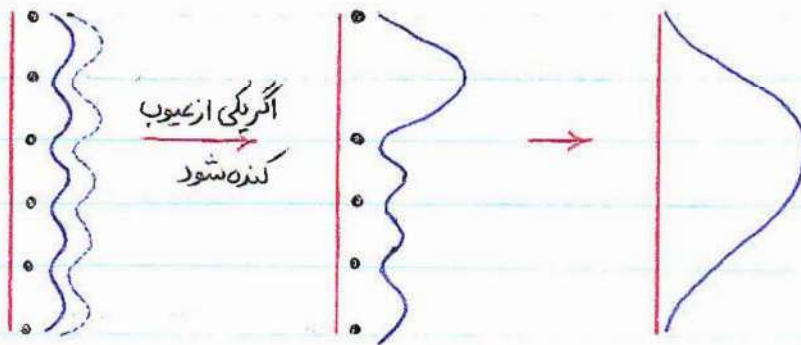 اگر یکی از عیوب
کنده شود